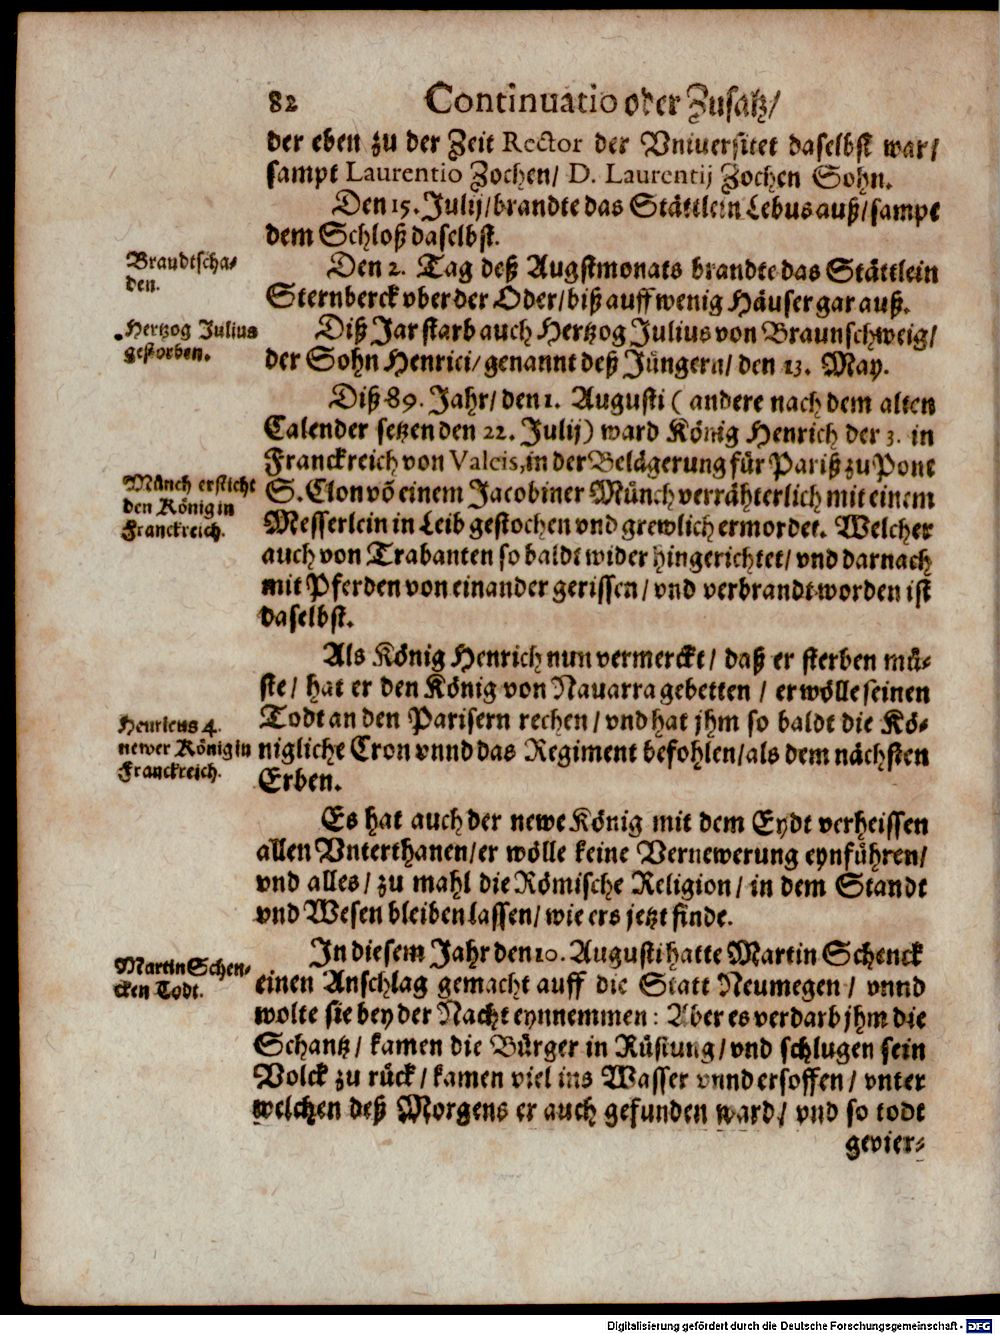 82 Continuatio oder Zusatz/
der eben zu der Zeit Rector der Vniuersitet daselbst war/
sampt Laurentio Zochen/ D. Laurentij Zochen Sohn.
Den 15. Julij/ brandte das Stättlein Lebus auß/ sampt
dem Schloß daselbst.
Brandtscha-
den.
Den 2. Tag deß Augstmonats brandte das Stättlein
Sternberck vber der Oder/ biß auff wenig Häuser gar auß.
Hertzog Julius
gestorben.
Diß Jar starb auch Hertzog Julius von Braunschweig/
der Sohn Henrici/ genannt deß Jüngern/ den 13. May.
Diß 89. Jahr/ den 1. Augusti ( andere nach dem alten
Calender setzen den 22. Julij) ward König Henrich der 3. in
Franckreich von Valeis, in der Belägerung für Pariß zu Pont
Münch ersticht
den König in
Franckreich.
S. Clon võ einem Jacobiner Münch verrähterlich mit einem
Messerlein in Leib gestochen vnd grewlich ermordet. Welcher
auch von Trabanten so baldt wider hingerichtet/ vnd darnach
mit Pferden von einander gerissen/ vnd verbrandt worden ist
daselbst.
Als König Henrich nun vermerckt/ daß er sterben mü-
ste/ hat er den König von Nauarra gebetten/ er wölle seinen
Todt an den Parisern rechen/ vnd hat jhm so baldt die Kö-
Henricus 4.
newer König in
Franckreich.
nigliche Cron vnnd das Regiment befohlen/ als dem nächsten
Erben.
Es hat auch der newe König mit dem Eydt verheissen
allen Vnterthanen/ er wölle keine Vernewerung eynführen/
vnd alles/ zu mahl die Römische Religion/ in dem Standt
vnd Wesen bleiben lassen/ wie ers jetzt finde.
Martin Schen-
cken Todt.
In diesem Jahr den 10. Augusti hatte Martin Schenck
einen Anschlag gemacht auff die Statt Neumegen/ vnnd
wolte sie bey der Nacht eynnemmen: Aber es verdarb jhm die
Schantz/ kamen die Bürger in Rüstung/ vnd schlugen sein
Volck zu rück/ kamen viel ins Wasser vnnd ersoffen/ vnter
welchen deß Morgens er auch gefunden ward/ vnd so todt
gevier-
Digitalisierung gefördert durch die Deutsche Forschungsgemeinschaft - DFG